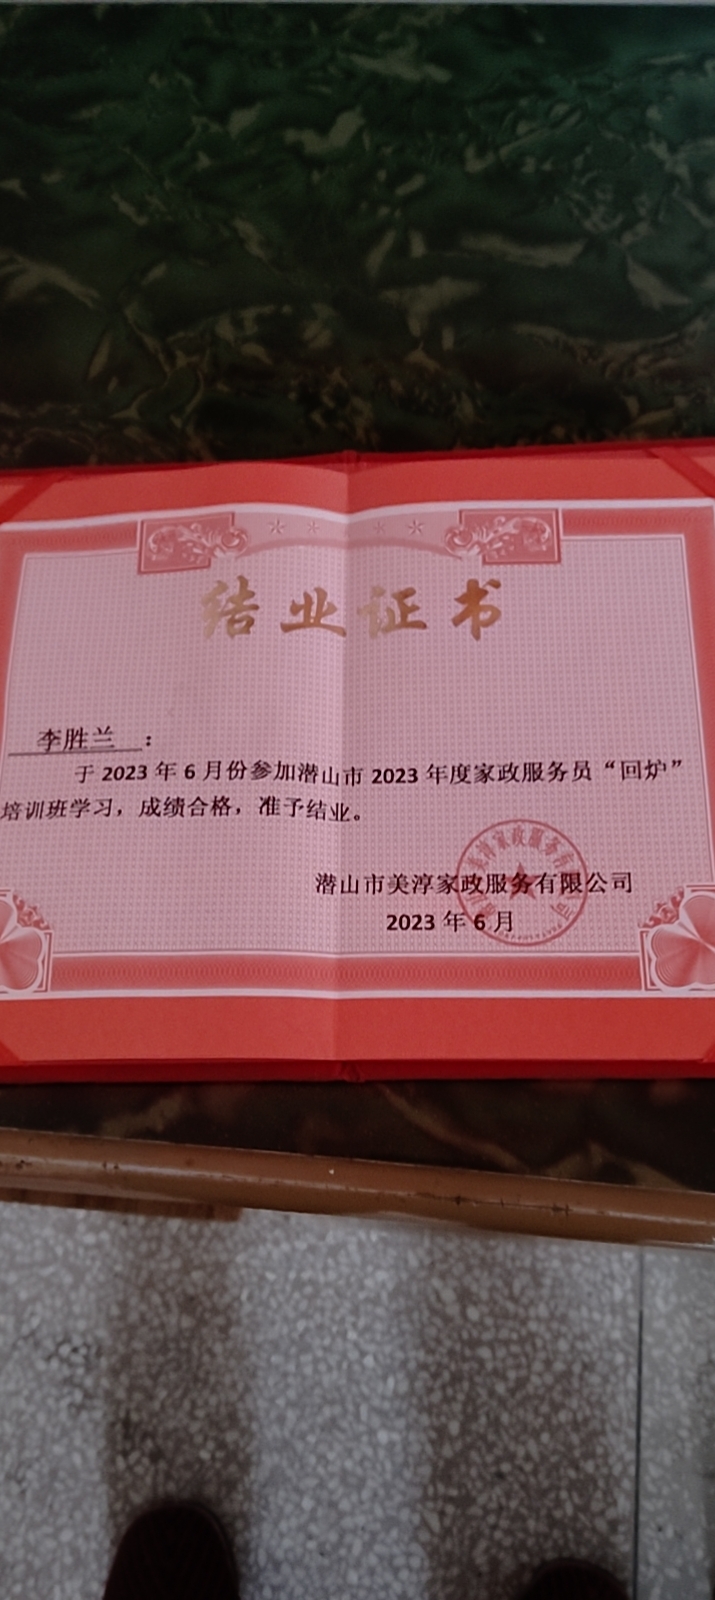 结业证书
李胜兰 :
于 2023 年 6 月份参加潜山市 2023 年度家政服务员“回炉”
培训班学习，成绩合格，准予结业。
潜山市美淳家政服务有限公司
2023 年 6 月